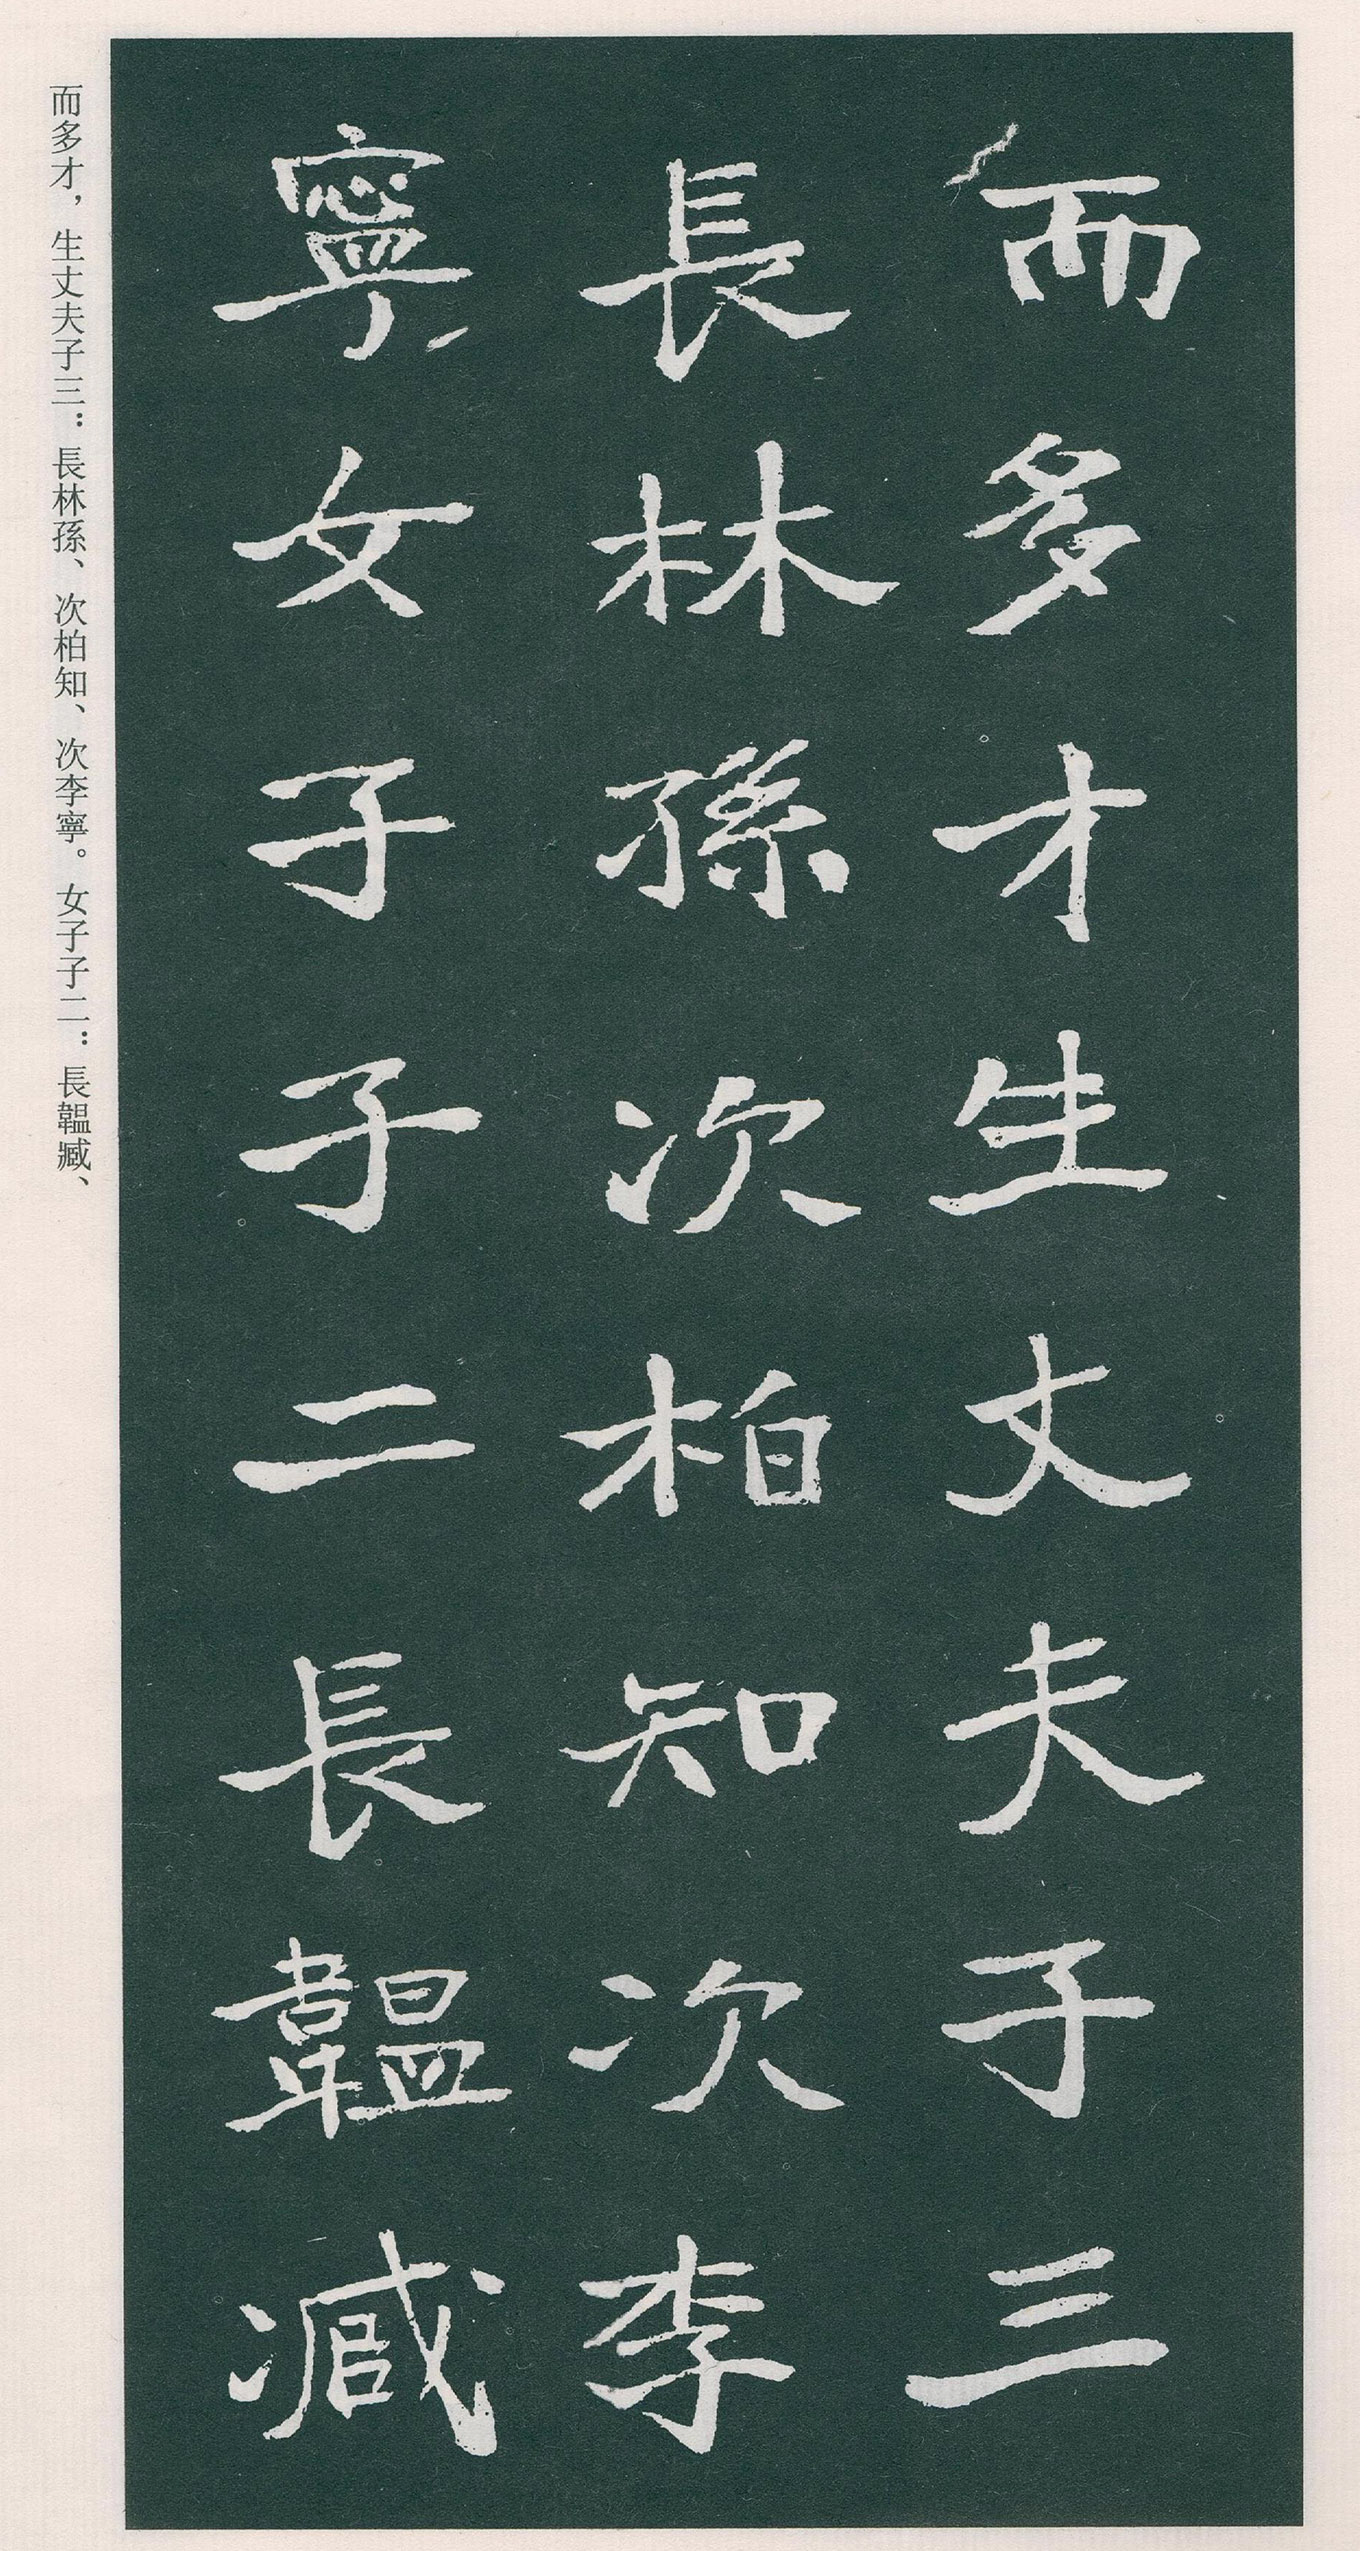 而多才生丈夫子三
長林孫次柏知次李
寧女子子二長韞臧
而多才，生丈夫子三：長林孫、次柏知、次李寧。女子子二：長韞臧、